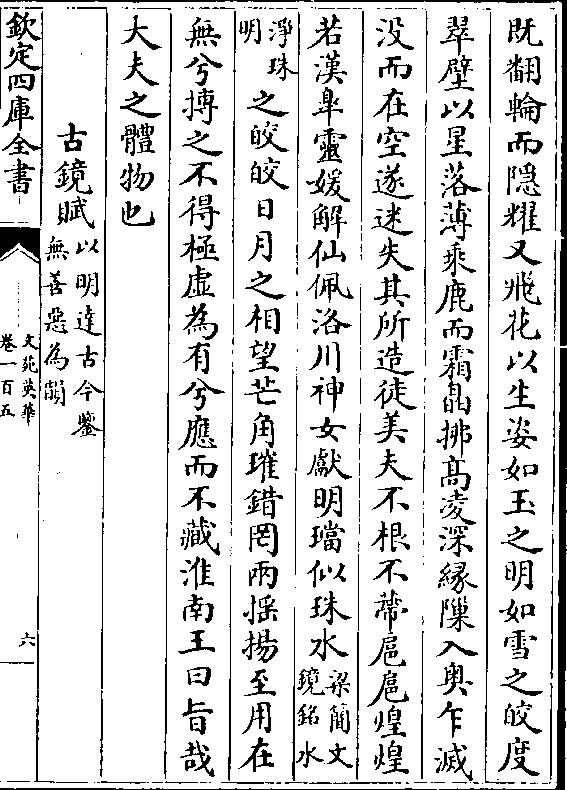 既翻輪而隱耀又飛花以生姿如玉之明如雪之皎度
翠壁以星落薄乘鹿而霜皛拂髙凌深緣隟入奥乍滅
没而在空遂迷失其所造徒美夫不根不蔕扈扈煌煌
若漢臯靈媛解仙佩洛川神女獻明璫似珠水梁簡文鏡銘水
淨珠明之皎皎日月之相望芒角璀錯罔兩揺揚至用在
無兮摶之不得極虚為有兮應而不藏淮南王曰旨哉
大夫之體物也
古鏡賦以明逹古今鑒無善惡為韻
欽定四庫全書
文苑英華
卷一百五
六